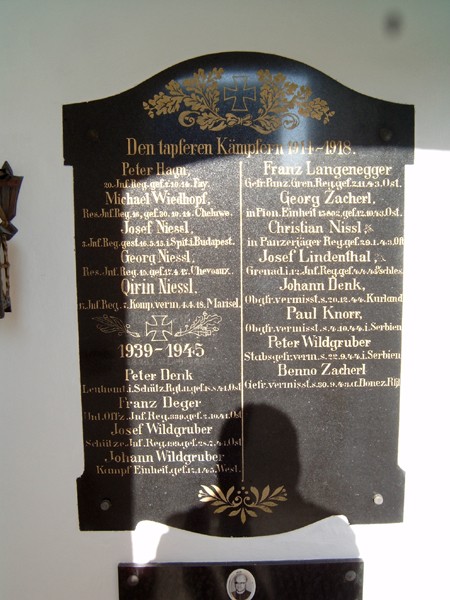 Den tapferen Kämpfern 1914-1918.
Peter Hagn,
20. Jnf. Reg. gef. 1.10.14. Fay.
Michael Wiedhopf,
Res. Jnf. Reg. 16, gef. 30.10.14. Cheluwe.
Josef Niessl,
2. Jnf. Reg. gest. 16.5.15. i. Spit. i. Budapest.
Georg Niessl,
Res. Jnf. Reg. 10. gef. 17.4.17. Chevaux.
Qirin Niessl,
Jnf. Reg. 7. Komp. verm. 4.4.18. Marisel.
1939-1945
Peter Denk
i. Schütz. Rgt. 41 Ost
Franz Deger
Unt. Offz. Jnf. Reg. gef. 41 Ost
Josef Wildgruber
Schütze Jnf. Reg. gef. Ost
Johann Wildgruber
Kampf Einheit, gef. 17.1.45. West.
Franz Langenegger
Gefr. Panz. Gren. Reg. gef. 2.11.43. Ost.
Georg Zacherl,
in Pion. Einheit gef. 12.10.43. Ost.
Christian Nissl
in Panzerjäger Reg. gef. 20.1.43. Ost
Josef Lindenthal,
Grenad. i. Jnf. Reg. gef.
Johann Denk,
Obgfr. vermisst. s. 20.12.44. Kurland
Paul Knorr,
Obgfr. vermisst. s. 4.10.44. i. Serbien
Peter Wildgruber
Stabsgefr. verm. s. 22.9.44. i. Serbien
Benno Zacherl
Gefr. vermisst. s. 30.9.43. a. Donez.